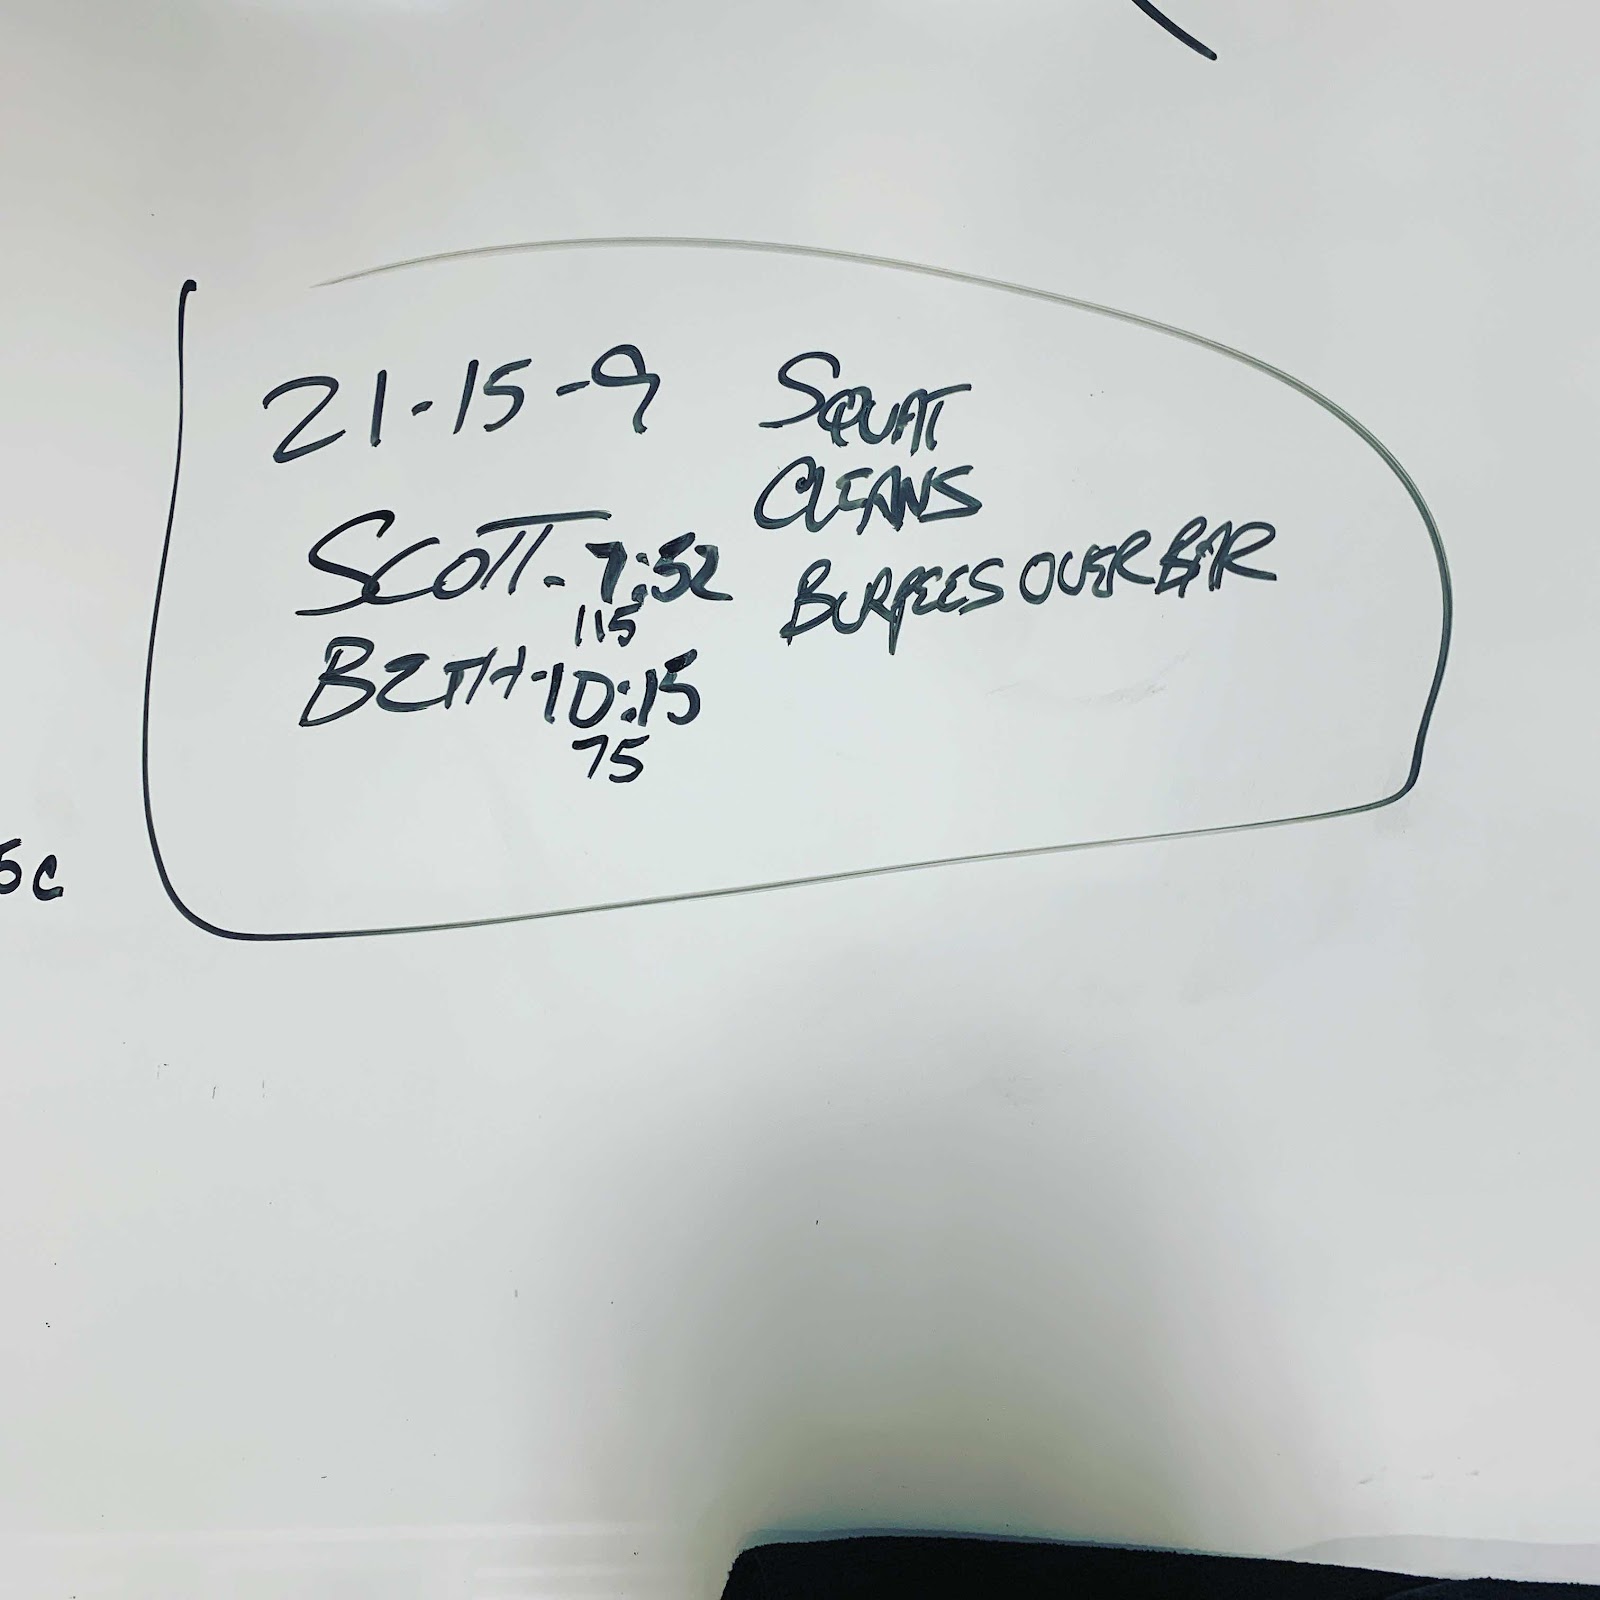 21-15-9
SQUAT
CLEANS
BURPEES OVER BAR
SCOTT-7:52
115
BETH-10:15
75
5c